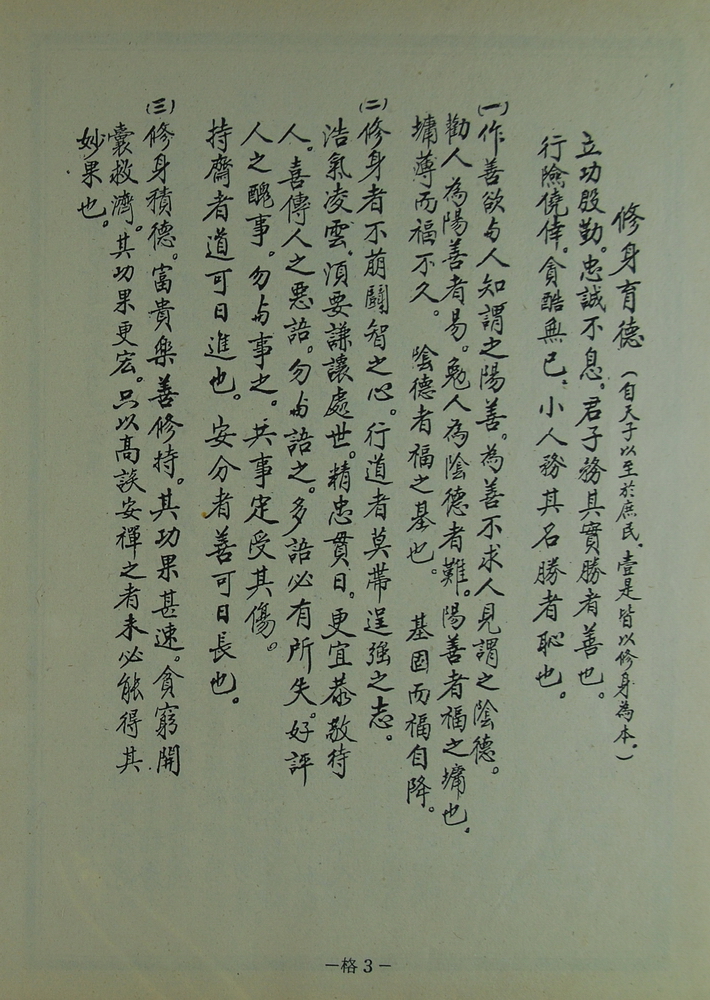 修身育德(自天子以至於庶民.壹是皆以修身為本。)
立功殷勤。忠誠不息。君子務其實勝者善也。
行險僥倖。貪酷無已.小人務其名勝者恥也。
(一)作善欲与人知謂之陽善。為善不求人見謂之陰德。
勸人為陽善者易。勉人為陰德者難。陽善者福之墉也。
墉薄而福不久。 陰德者福之基也。 基固而福自降。
(二)修身者不萠鬪智之心。行道者莫帶逞强之志。
浩氣凌雲.須要謙讓處世。精忠貫日。更宜恭敬待
人。喜傳人之惡語。勿与語之。多語必有所失。好評
人之醜事。勿与事之。共事定受其傷。
持齋者道可日進也。安分者善可日長也。
(三)修身積德。富貴樂善修持。其功果甚速。貪窮開
囊救濟。其功果更宏。只以高談安禪之者未必能得其
妙果也。
—格3—